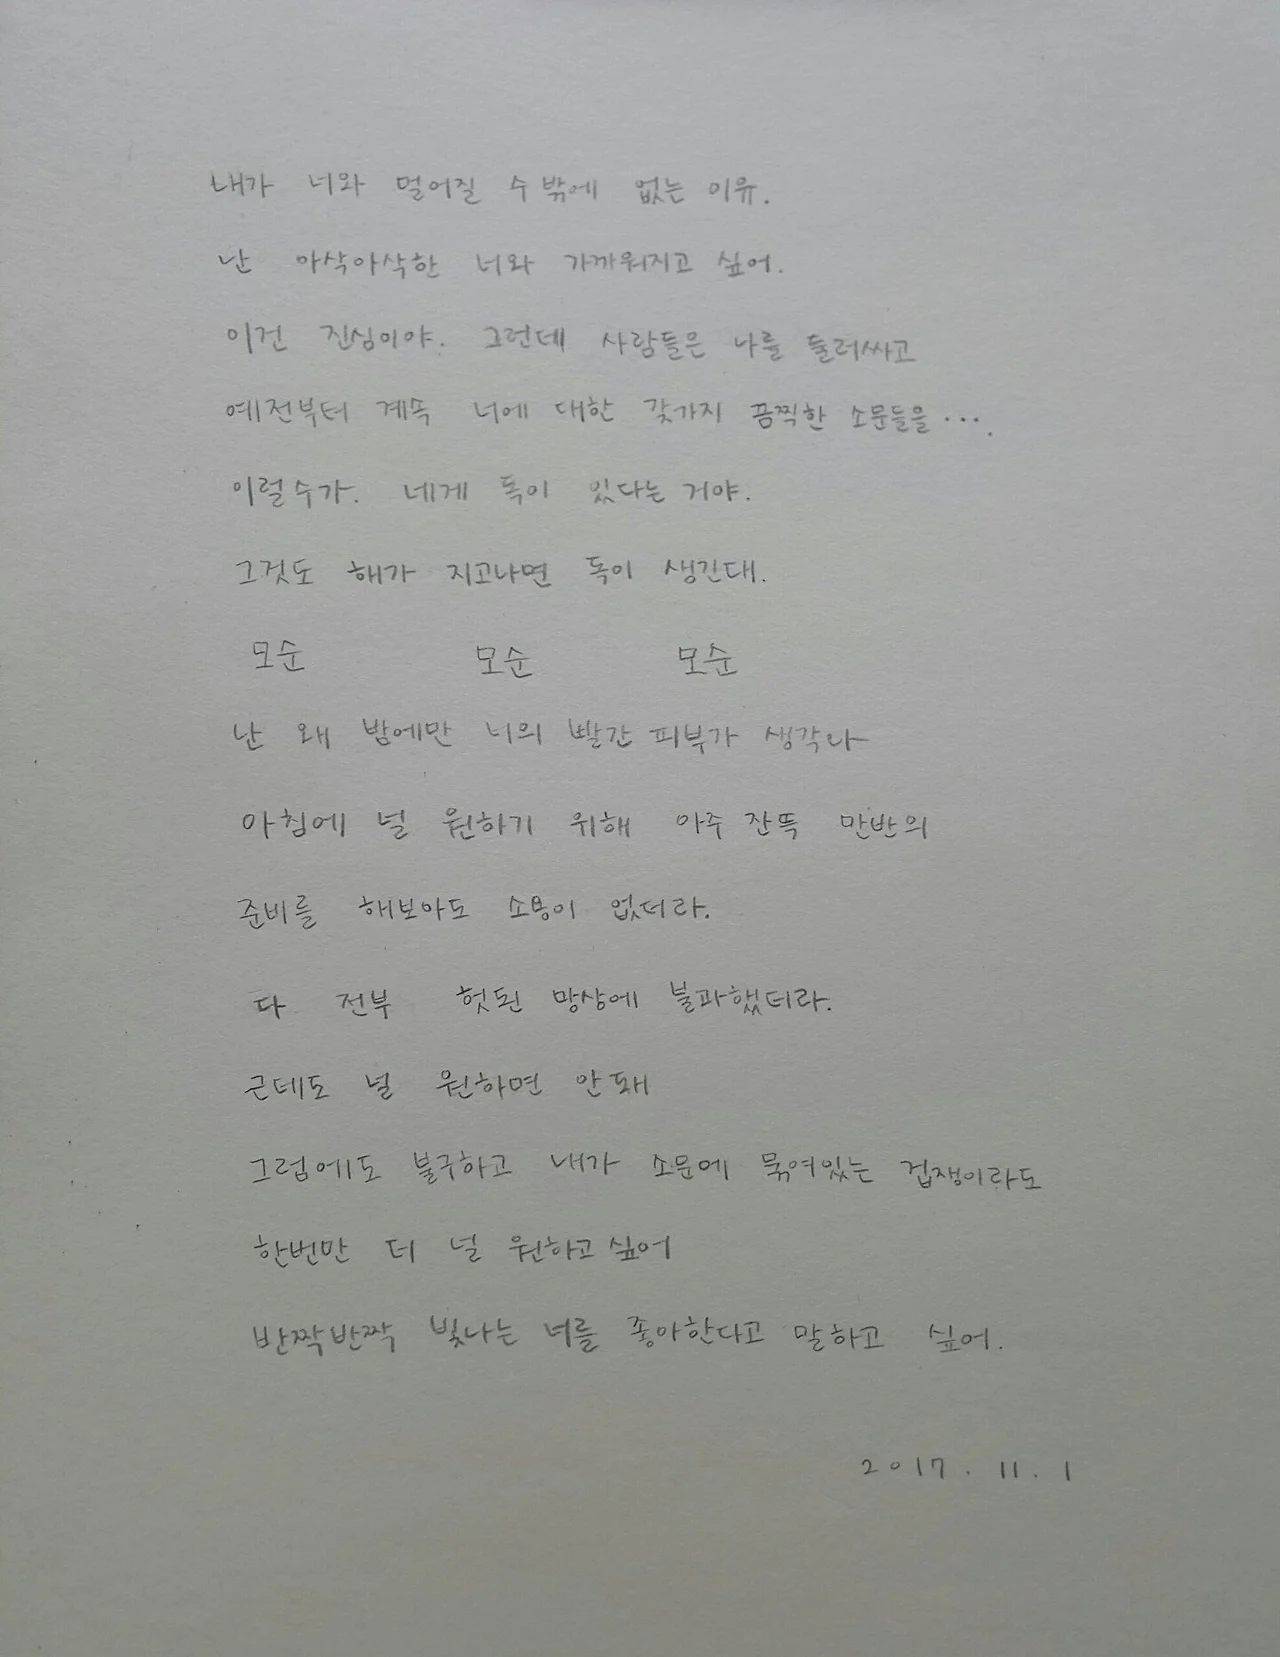 내가 너와 멀어질 수밖에 없는 이유.
난 아삭아삭한 너와 가까워지고 싶어.
이건 진심이야. 그런데 사람들은 나를 둘러싸고
예전부터 계속 너에 대한 갖가지 끔찍한 소문들을....
이럴수가. 네게 독이 있다는 거야.
그것도 해가 지고나면 독이 생긴대.
모순 모순 모순
난 왜 밤에만 너의 빨간 피부가 생각나
아침에 널 원하기 위해 아주 잔뜩 만반의
준비를 해보아도 소용이 없더라.
다 전부 헛된 망상에 불과했더라.
근데도 널 원하면 안돼
그럼에도 불구하고 내가 소문에 묶여있는 겁쟁이라도
한번만 더 널 원하고 싶어
반짝반짝 빛나는 너를 좋아한다고 말하고 싶어.
2017. 11. 1